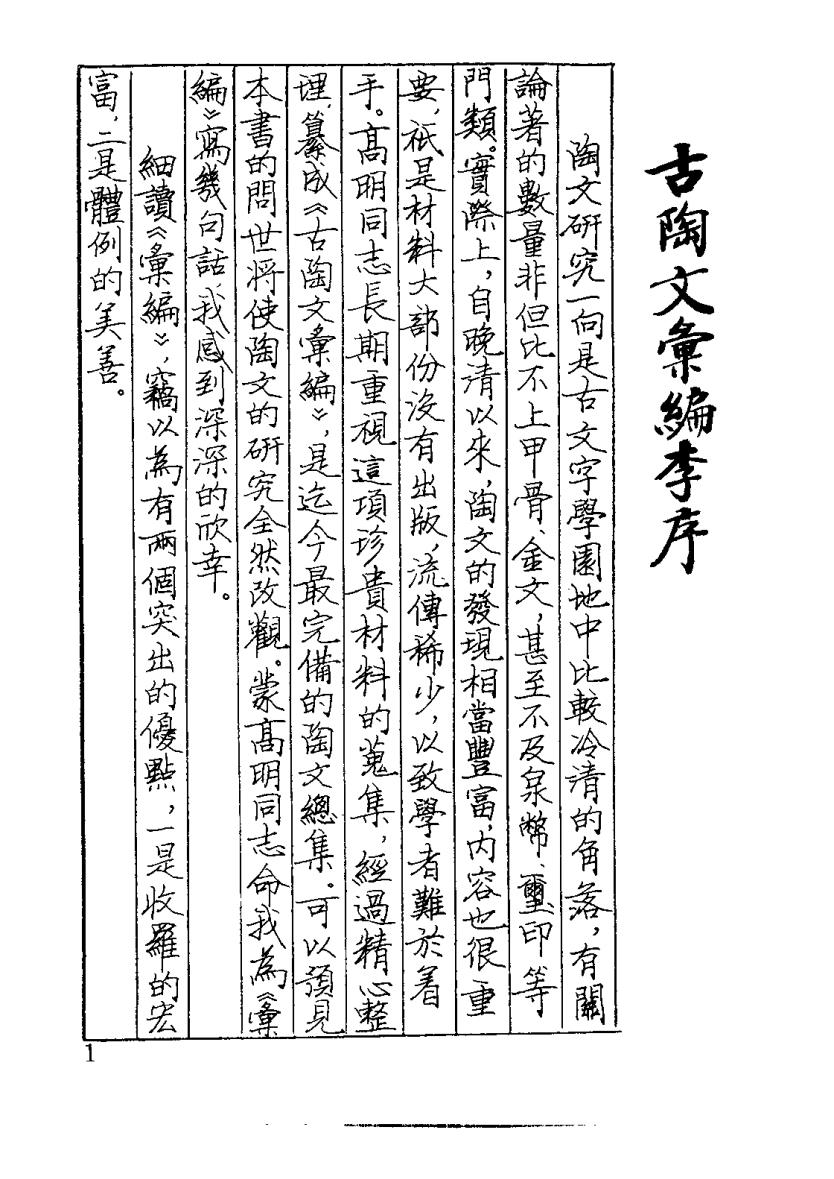 古陶文彙編李序
陶文研究一向是古文字學園地中比較冷清的角落，有關
論著的數量非但比不上甲骨、金文，甚至不及泉幣、璽印等
門類。實際上，自晚清以來，陶文的發現相當豐富，内容也很重
要，祇是材料大部份沒有出版，流傳稀少，以致學者難於着
手。高明同志長期重視這項珍貴材料的蒐集，經過精心整
理，纂成《古陶文彙編》，是迄今最完備的陶文總集。可以預見
本書的問世將使陶文的研究全然改觀。蒙高明同志命我為《彙
編》寫幾句話，我感到深深的欣幸。
細讀《彙編》，竊以為有兩個突出的優點，一是收羅的宏
富，二是體例的美善。
1